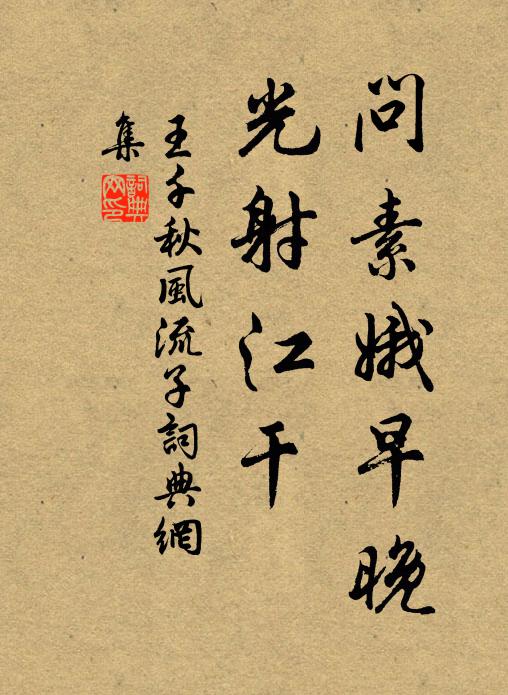 問素娥早晚
光射江干
王千秋風流子詞典網
集
詞典